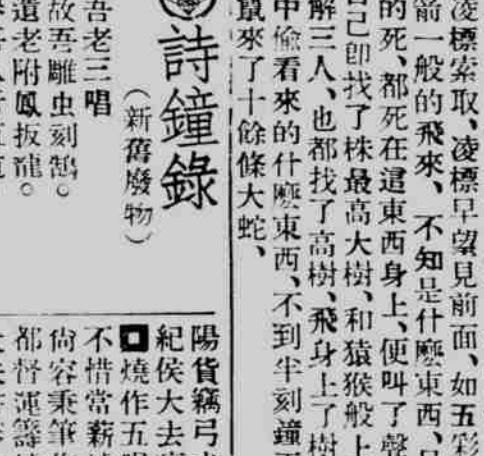 凌標索取、凌標早望見前面、如五彩
箭一般的飛來、不知是什麽東西、
的死、都死在這東西身上、便叫了聲
己卽找了株最高大樹、和猿猴般上
解三人、也都找了高樹、飛身上了樹
中偷看來的什麽東西、不到半刻鐘
竄來了十餘條大蛇、
詩鐘錄
（新舊廢物）
吾老三唱
故吾雕虫刻鵠。
遺老附鳳扳龍。
陽貨竊弓
紀侯大去
燒作五唱
不惜當薪
尙容秉筆
都督運籌